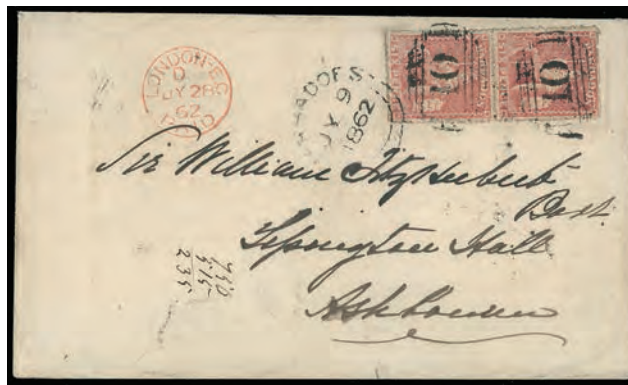 LONDON-EC
D
JY 28
62
PAID
BARBADOES
JY 9
1862
10
10
Sir William Fitzherbert
Bart
Tissington Hall
Ashbourne
750
515
235